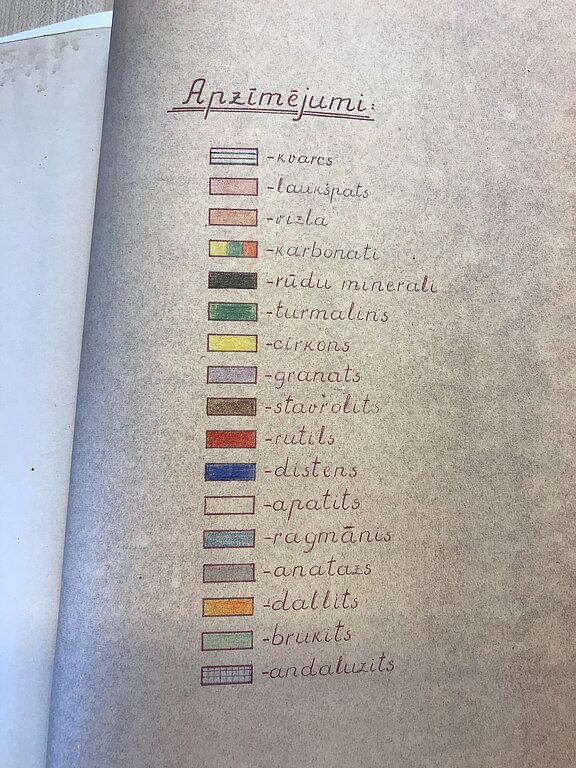 Apzīmējumi:
-kvarcs
-laukšpats
-vizla
-karbonati
-rūdu minerali
-turmalins
-cirkons
-granats
-stavrolits
-rutils
-distens
-apatits
-ragmānis
-anatazs
-dallits
-brukits
-andaluzits